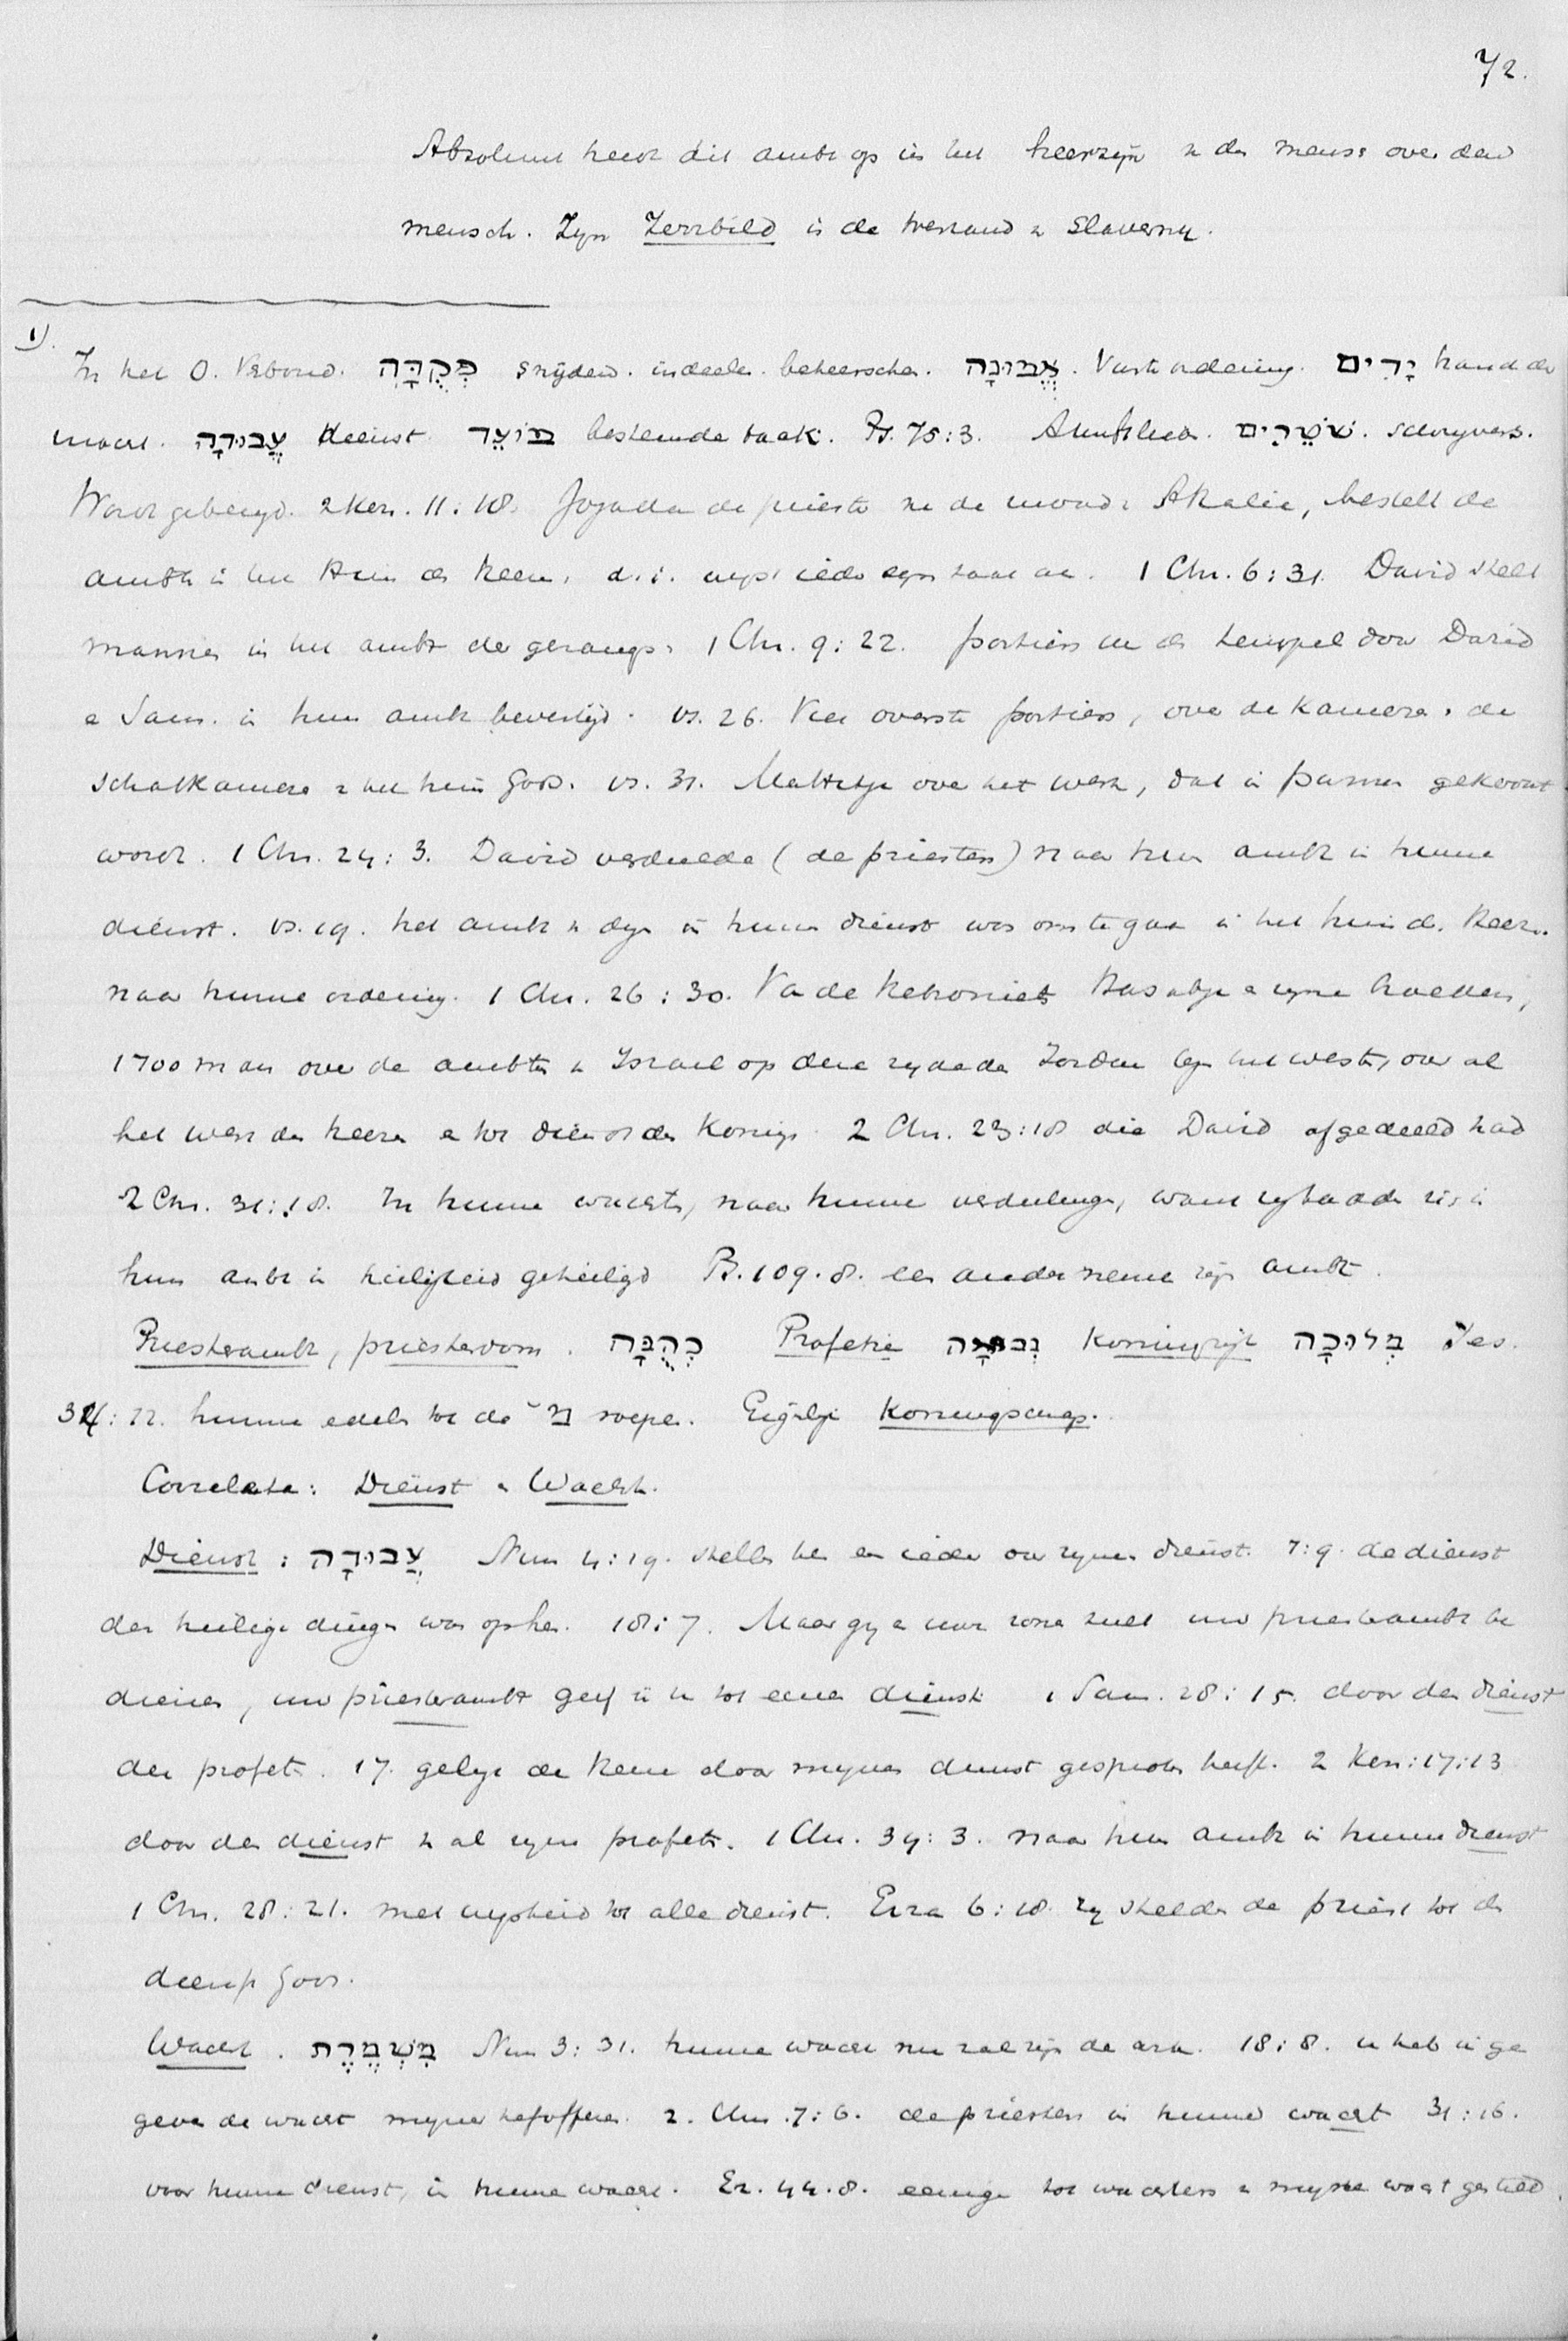 72.
Absoluut keert dit ambt op in het heerzijn v den mensch over den
mensch. Zijn Zerrbild is de toestand v slaverny.
1).
In het O. Verbond. פְּקֻדָּה snijden. indeelen. beheerschen. אֱמוּנָה. Vaste ordening. יָדַיִם hand der
macht. עֲבוּדָה dienst. מוֹעֵד bestemde taak. Ps. 75:3. Ambtlieden. שֹׁטְרִים. schryvers.
Wordt gebezigd. 2 Kon. 11:18. Jojada de priester na de moord v Athalia, bestelt de
ambten in het Huis des Heeren, d.i. wyst ieder zyn taak aan. 1 Chr. 6:31. David stelt
mannen in het ambt des gezangs. 1 Chr. 9:22. portiers in de tempel door David
e Sam. in hun ambt bevestigd. vs. 26. Vier overste portiers, over de kameren e de
schatkameren v het huis Gods. vs. 31. Mattitja over het werk, dat in pannen gekookt
wordt. 1 Chr. 24:3. David verdeelde (de priesters) naar hun ambt in hunne
dienst. vs. 19. het ambt v dezen in hunnen dienst was om te gaan in het huis des Heeren
naar hunne ordening. 1 Chr. 26:30. Van de Hebronieten Hasabja e zyne broeders,
1700 man over de ambten v Israel op deze zyde de Jordan tegen het westen, over al
het werk des Heeren e tot dienst des Konings. 2 Chr. 23:18 die David afgedeeld had
2 Chr. 31:18. In hunne wachten, naar hunne verdeelingen, want zy hadden zich in
hun ambt in heiligheid geheiligd Ps. 109.8. een ander neme zijn ambt.
Priesterambt, priesterdom. כְּהֻנָּה Profetie נְבוּאָה Koningrijk מְלוּכָה Jes.
34:12. hunne edelen tot de מ' roepen. Eigenlijk Koningschap.
Correlaten: Dienst e Wacht.
Dienst: עֲבוּדָה Num 4:19. stellen hen een ieder over zynen dienst. 7:9. de dienst
der heilige dingen was op hen. 18:7. Maar gy e uwe zonen zult uw priesterambt be
dienen, uw priesterambt geef ik u tot eenen dienst 1 Sam. 28:15. door den dienst
der profeten. 17. gelyk de Heere door mynen dienst gesproken heeft. 2 Kon: 17:13
door den dienst v al zyne profeten. 1 Chr. 24:3. naar hun ambt in hunne dienst
1 Chr. 28:21. met wysheid tot alle dienst. Ezra 6:18. zy stelden de priest. tot de
dienst Gods.
Wacht. מִשְׁמֶרֶת Num 3:31. hunne wacht nu zal zijn de ark. 18:8. ik heb u ge
geven de wacht myner hefofferen. 2. Chr. 7:6. de priesters in hunne wacht 31:16.
voor hunne dienst, in hunne wacht. Ez. 44.8. eenige tot wachters v myne wacht gesteld.